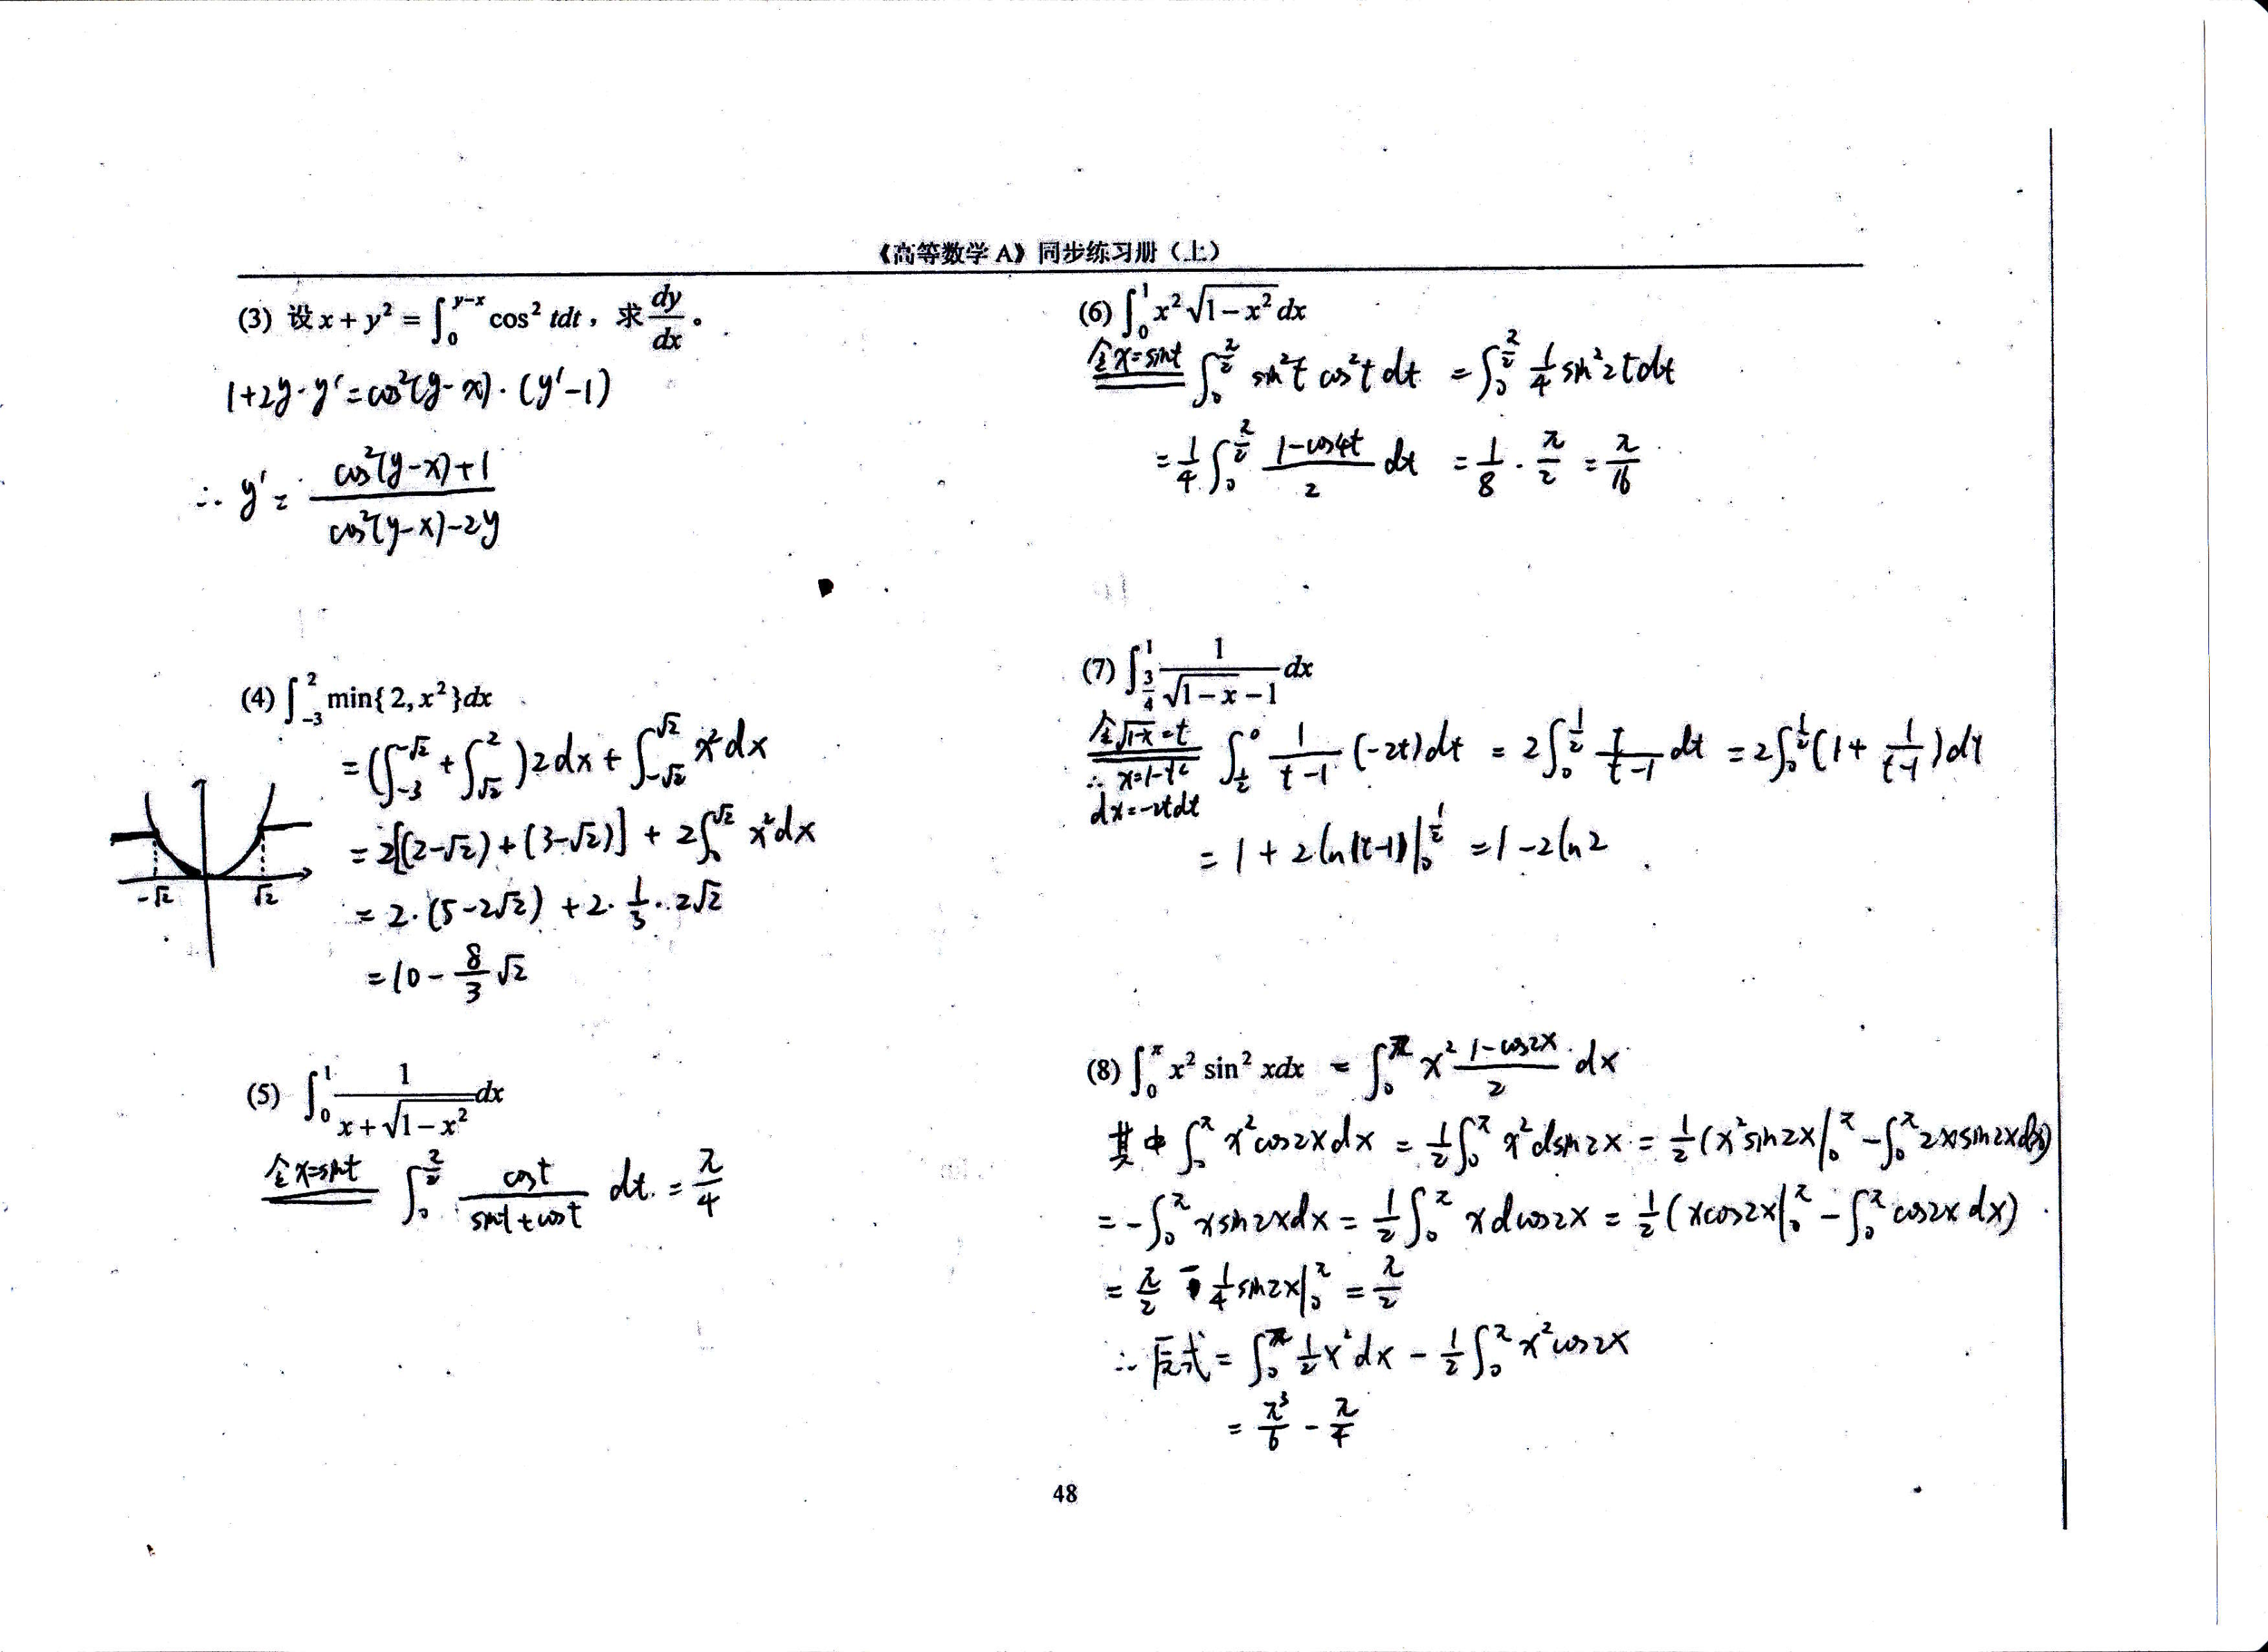 《高等数学 A》同步练习册（上）
(3) 设 x + y² = ∫₀^{y−x} cos² tdt，求 dy/dx 。
1+2y·y′=cos²(y−x)·(y′−1)
∴ y′= (cos²(y−x)+1)/(cos²(y−x)−2y)
(4) ∫_{−3}^{2} min{2, x²}dx
=(∫_{−3}^{−√2}+∫_{√2}^{2})2dx+∫_{−√2}^{√2} x²dx
=2[(2−√2)+(3−√2)]+2∫₀^{√2} x²dx
−√2 √2
=2·(5−2√2)+2·1/3·2√2
=10−8/3 √2
(5) ∫₀¹ 1/(x+√(1−x²)) dx
令x=sint ∫₀^{π/2} cost/(sint+cost) dt = π/4
(6) ∫₀¹ x²√(1−x²)dx
令x=sint ∫₀^{π/2} sin²t cos²t dt =∫₀^{π/2} 1/4 sin²2tdt
=1/4 ∫₀^{π/2} (1−cos4t)/2 dt =1/8·π/2=π/16
(7) ∫_{3/4}^{1} 1/(√(1−x)−1) dx
令√(1−x)=t ∫_{1/2}^{0} 1/(t−1) (−2t)dt = 2∫₀^{1/2} t/(t−1) dt = 2∫₀^{1/2}(1+1/(t−1))dt
∴ x=1−t²
dx=−2tdt
= 1+2ln|t−1| |₀^{1/2} =1−2ln2
(8) ∫₀^π x² sin² xdx = ∫₀^π x² (1−cos2x)/2 ·dx
其中 ∫₀^π x²cos2xdx = 1/2∫₀^π x²dsin2x = 1/2(x²sin2x|₀^π −∫₀^π 2xsin2xdx)
=−∫₀^π xsin2xdx = 1/2∫₀^π xdcos2x = 1/2(xcos2x|₀^π −∫₀^π cos2xdx)
=π/2 − 1/4 sin2x|₀^π =π/2
∴ 原式=∫₀^π 1/2x²dx−1/2∫₀^π x²cos2x
=π³/6−π/4
48